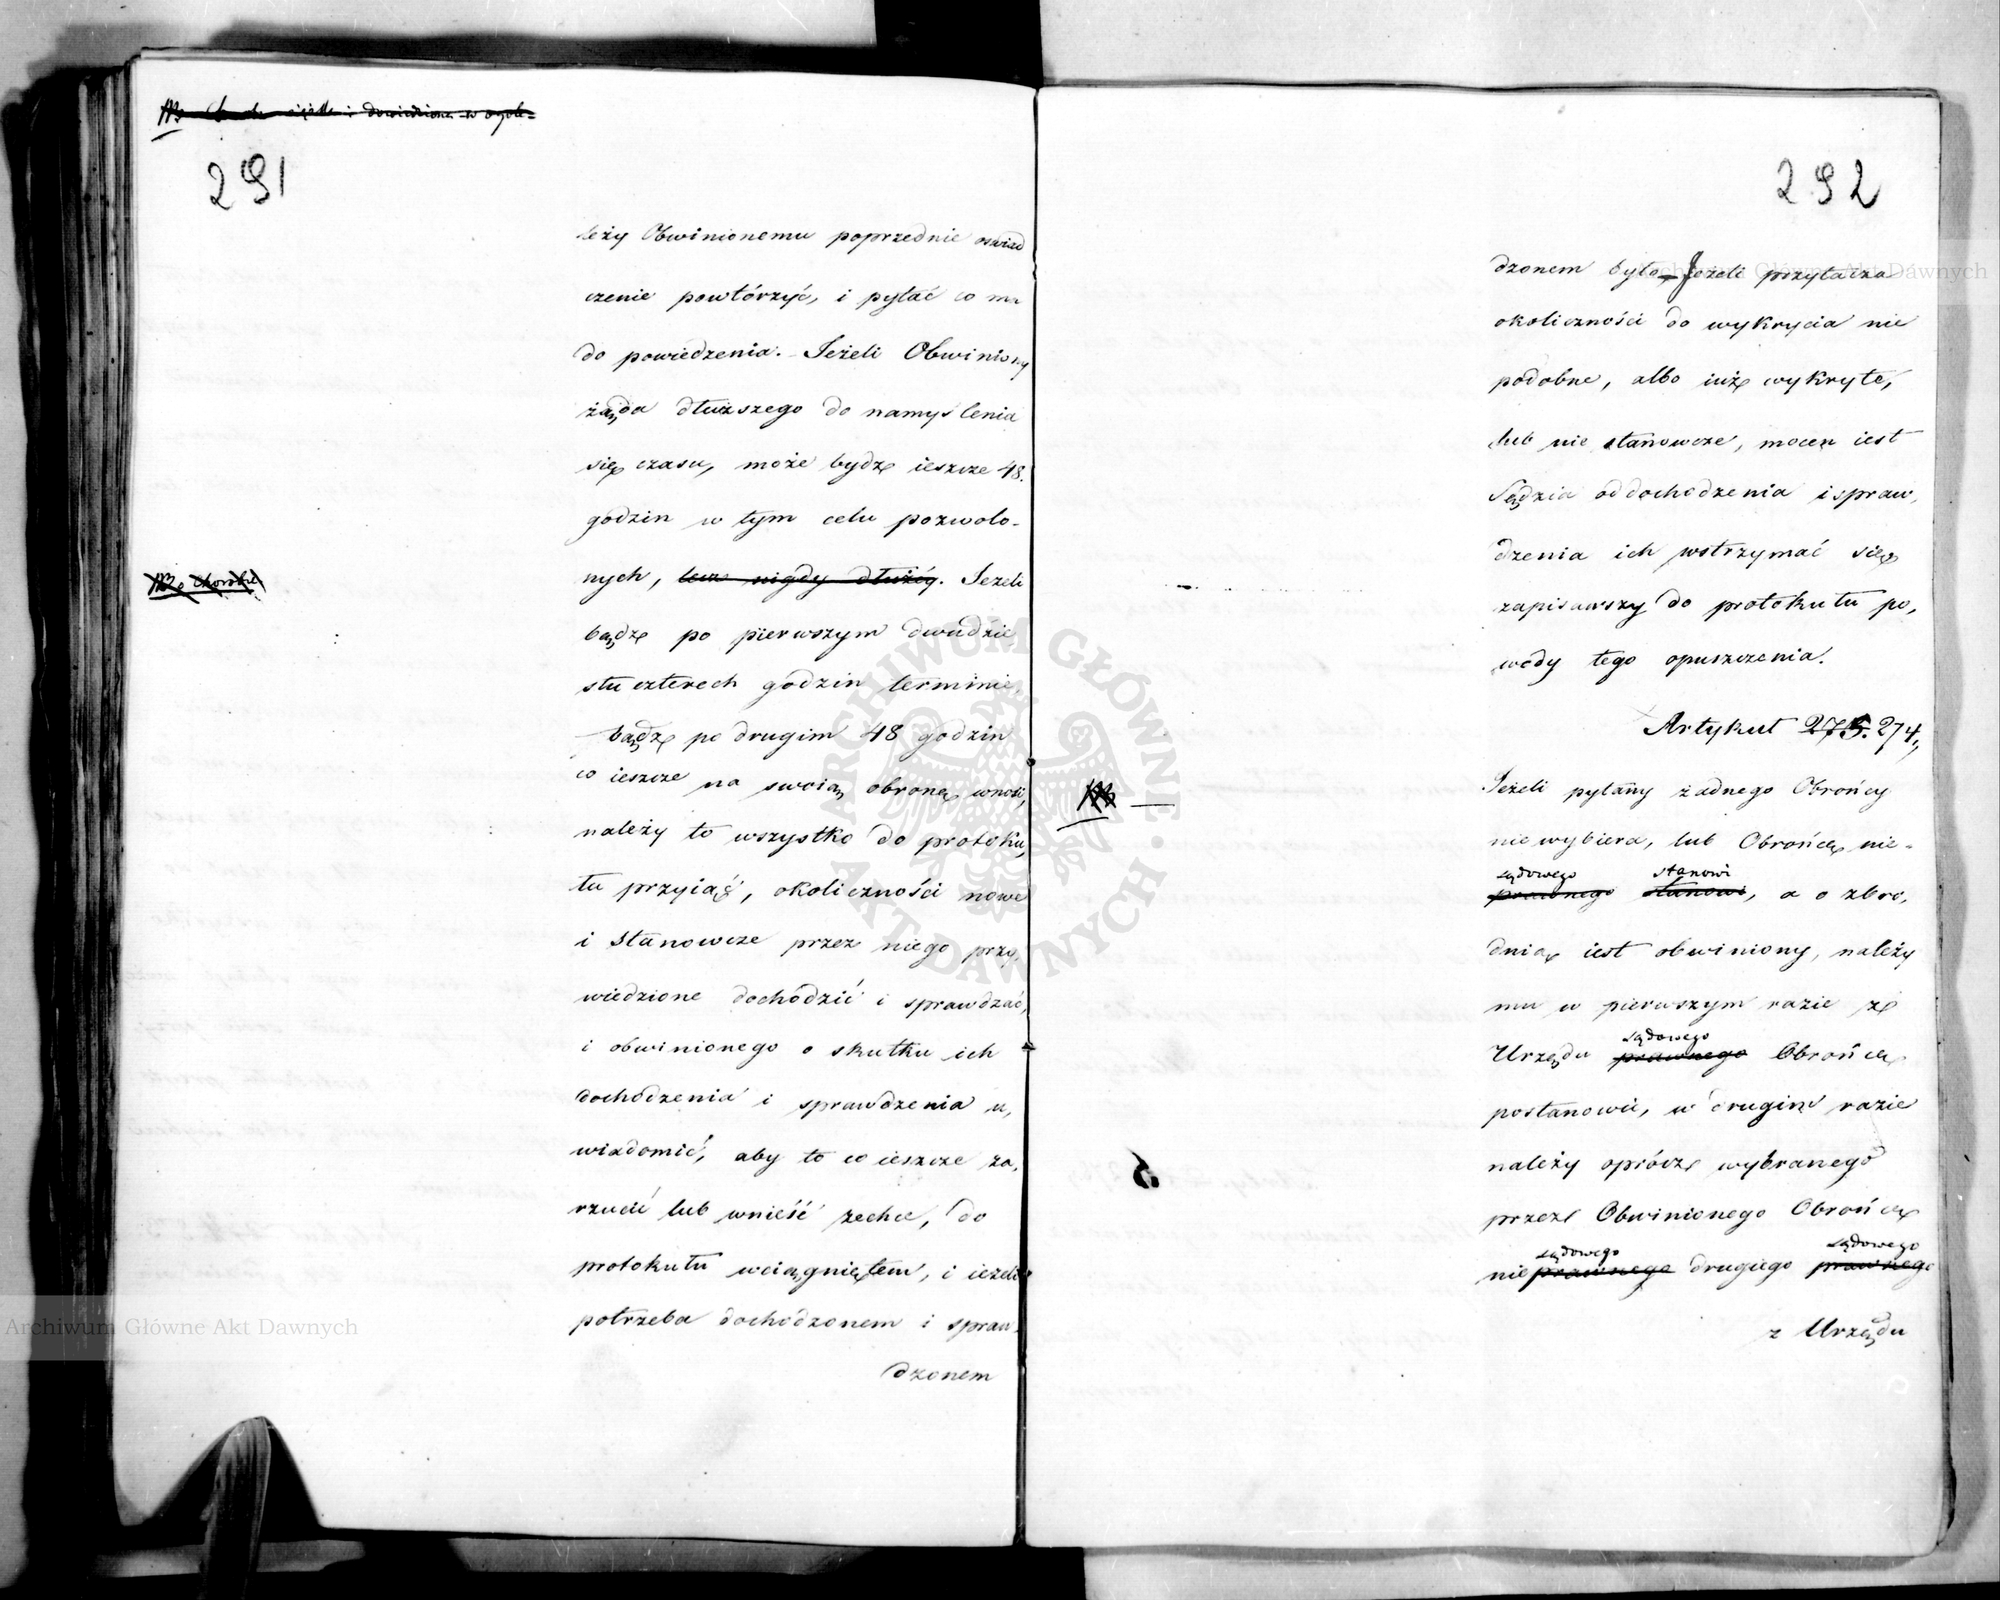 291
leży Obwinionemu poprzednie oświad
czenie powtórzyć, i pytać co ma
do powiedzenia. Jeżeli Obwiniony
żąda dłuższego do namyślenia
się czasu, może bydź ieszcze 48.
godzin w tym celu pozwolo-
nych, lecz nigdy dłużéy. Jeżeli
bądź po pierwszym dwudzie
stu czterech godzin terminie,
bądź po drugim 48 godzin
co ieszcze na swoią obronę wnosi,
należy to wszystko do protoku,
łu przyiąć, okoliczności nowe
i stanowcze przez niego przy,
wiedzione dochodzić i sprawdzać,
i obwinionego o skutku ich
dochodzenia i sprawdzenia u,
wiadomić, aby to co ieszcze za,
rzucić lub wnieść zechce, do
protokułu wciągniętem, i ieżeli
potrzeba dochodzonem i spraw-
dzonem
292
dzonem było, Jeżeli przytacza
okoliczności do wykrycia nie
podobne, albo iuż wykryte,
lub nie stanowcze, mocen iest
Sędzia od dochodzenia i spraw,
dzenia ich wstrzymać się
zapisawszy do protokułu po,
wody tego opuszczenia.
Artykuł 275. 274.
Jeżeli pytany żadnego Obrońcy
nie wybiera, lub Obrońcę nie-
sądowego stanowi
prawnego stanowi, a o zbro,
dnię iest obwiniony, należy
mu w pierwszym razie z
sądowego
Urzędu prawnego Obrońcę
postanowić, w drugim razie
należy oprócz wybranego
przez Obwinionego Obrońcę
sądowego sądowego
nieprawnego drugiego prawnego
z Urzędu
Archiwum Główne Akt Dawnych
Archiwum Główne Akt Dawnych
ARCHIWUM GŁÓWNE AKT DAWNYCH